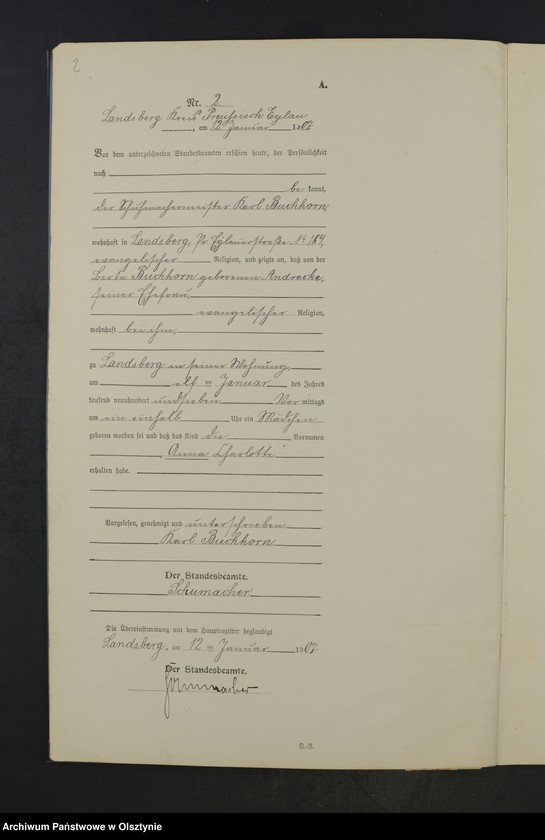 2
A.
Nr. 2
Landsberg Kreis Preußisch Eylau
, am 12 Januar 1907
Vor dem unterzeichneten Standesbeamten erschien heute, der Persönlichkeit
nach
be kannt,
der Schuhmachermeister Karl Buchhorn,
wohnhaft in Landsberg, Pr. Eylauerstraße No 184,
evangelischer Religion, und zeigte an, daß von der
Berta Buchhorn geborenen Andrecke,
seiner Ehefrau,
evangelischer Religion,
wohnhaft bei ihm,
zu Landsberg in seiner Wohnung,
am elf ten Januar des Jahres
tausend neunhundert und sieben Vor mittags
um ein einhalb Uhr ein Mädchen
geboren worden sei und daß das Kind die Vornamen
Anna Charlotte
erhalten habe.
Vorgelesen, genehmigt und unterschrieben
Karl Buchhorn
Der Standesbeamte.
Schumacher.
Die Übereinstimmung mit dem Hauptregister beglaubigt
Landsberg, am 12 ten Januar 1907
Der Standesbeamte.
Schumacher
Archiwum Państwowe w Olsztynie